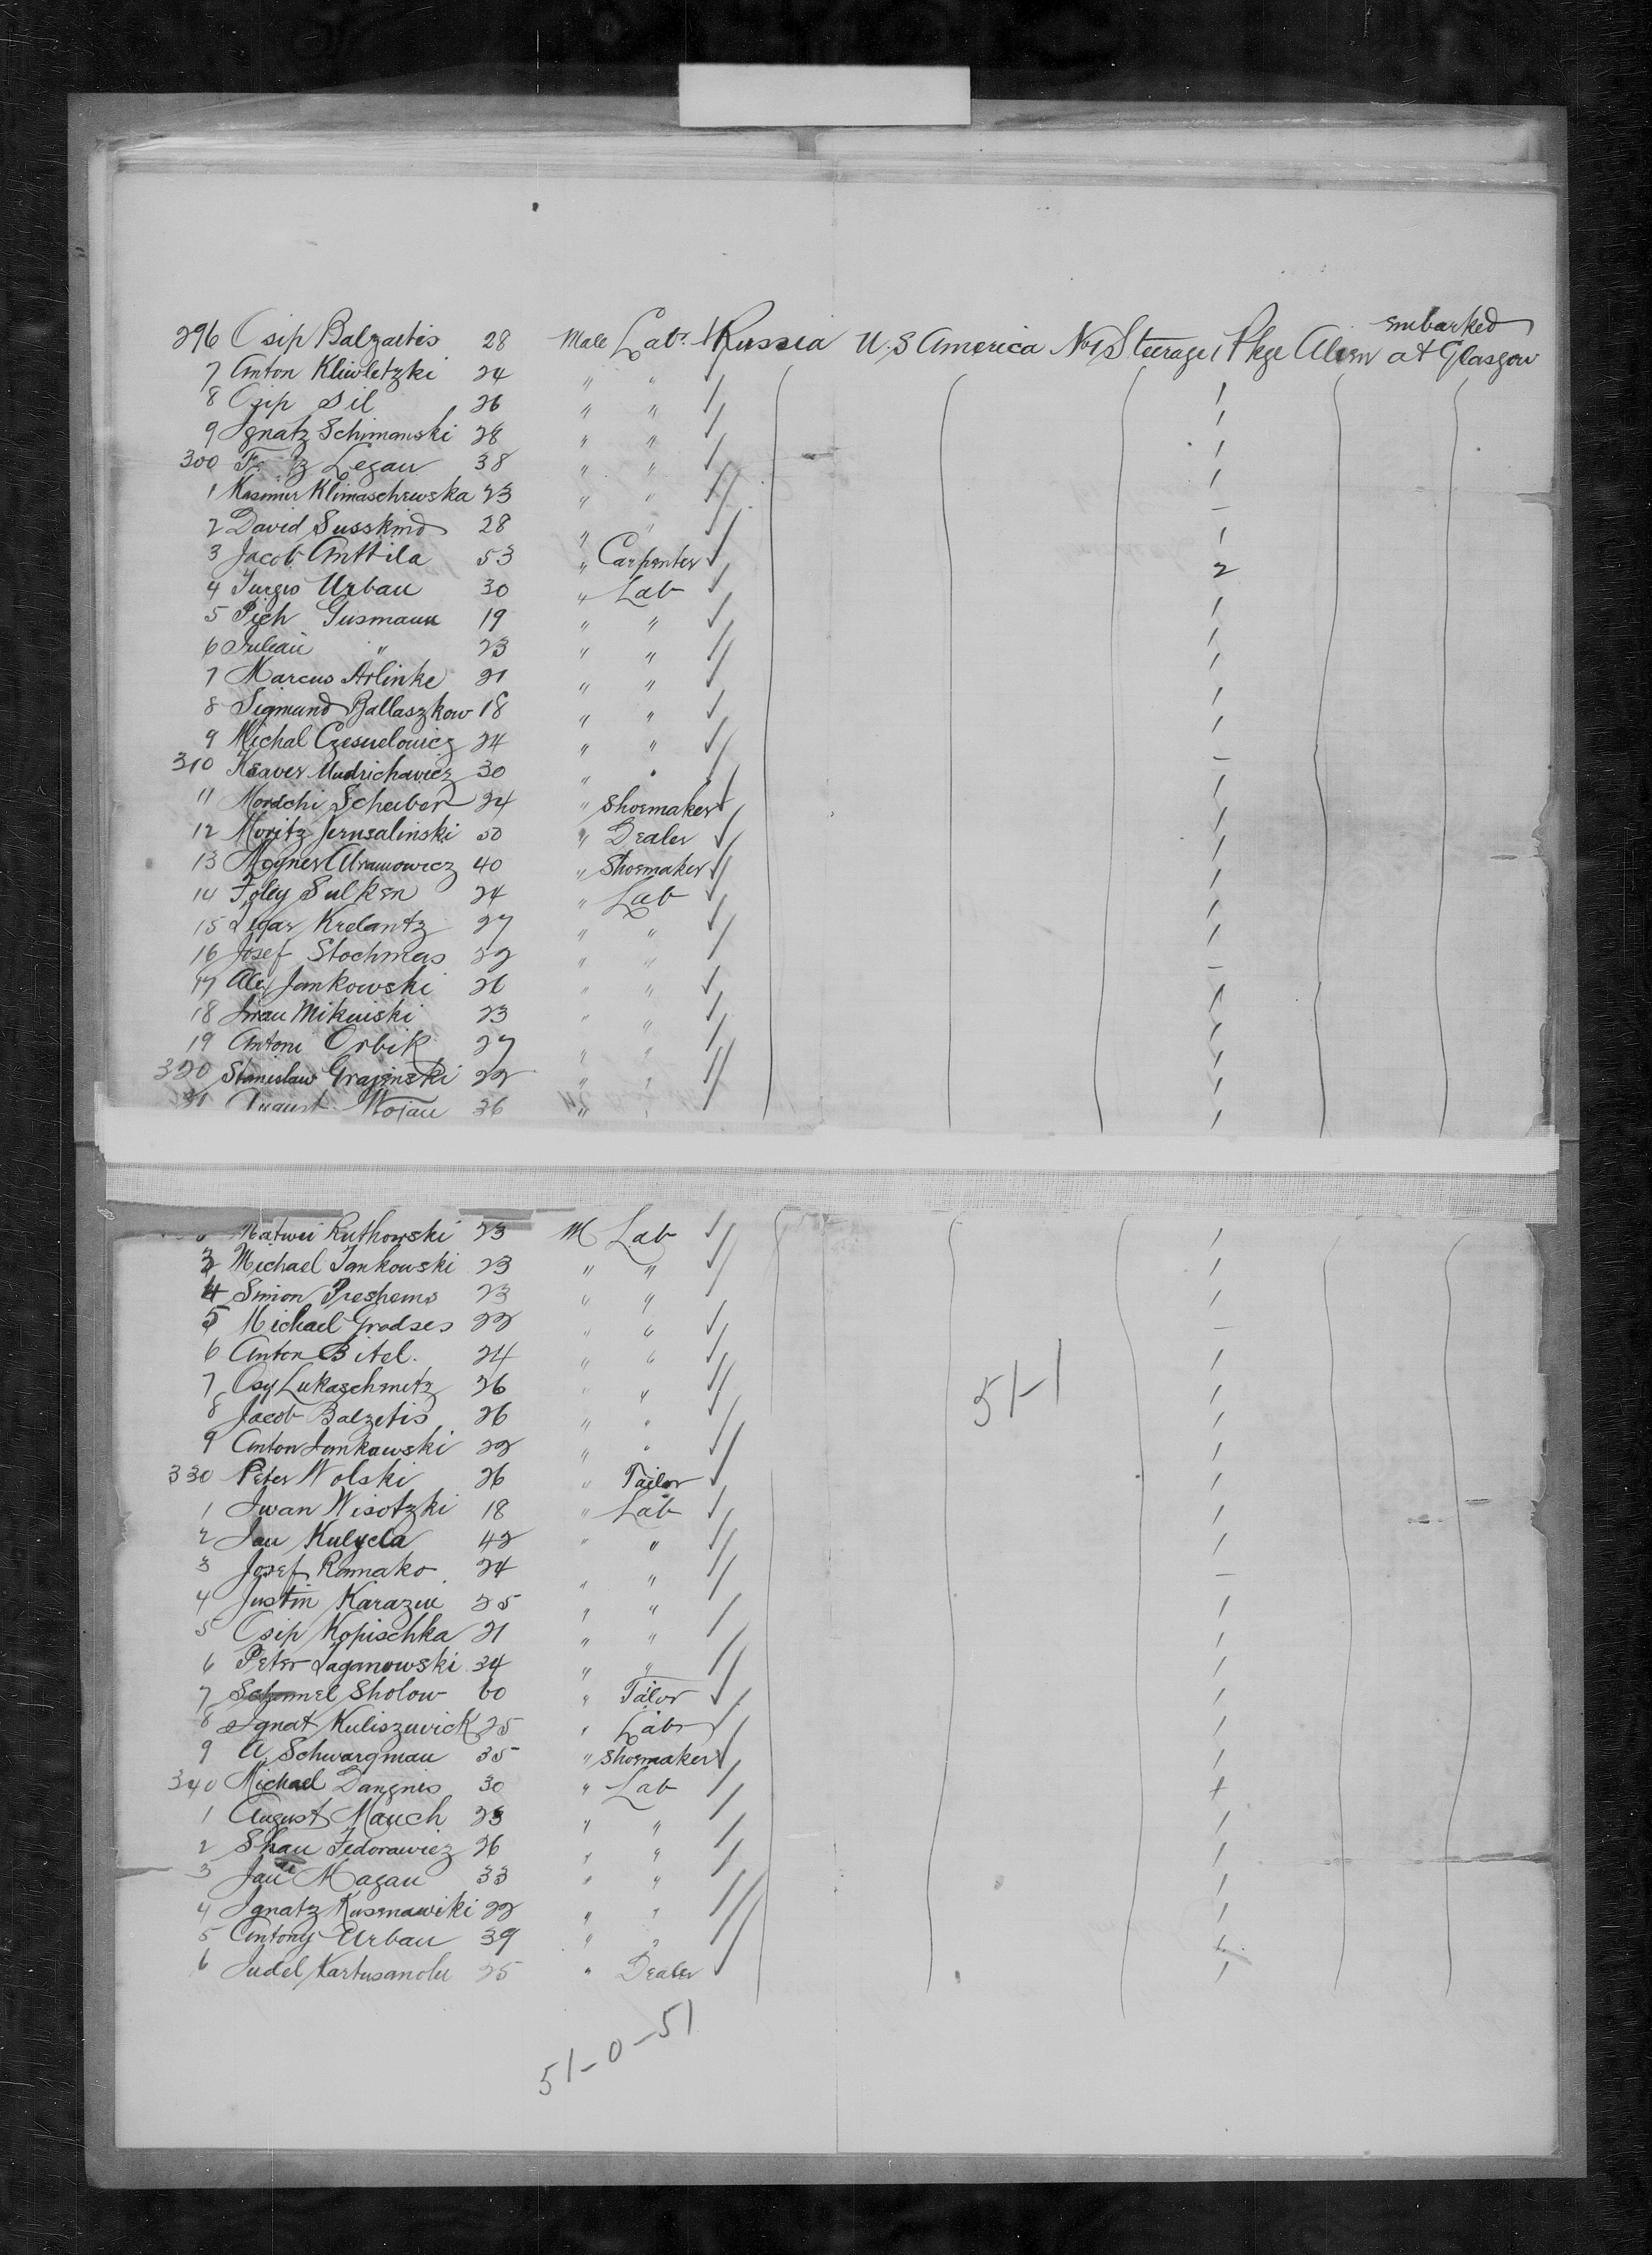 296 Osip Balzartis 28 Male Lab. Russia U.S America No 1 Steerage 1 Pkge Alien embarked at Glasgow
7 Anton Kliwletzki 24 " " 1
8 Osip Sil 26 " " 1
9 Ignatz Schimanski 28 " " 1
300 Legau 38 " " 1
1 Kasimir Klimaschewska 23 " " –
2 David Susskind 28 " " 1
3 Jacob Anttila 53 " Carpenter 2
4 Jurgis Urbau 30 " Lab 1
5 Pich Gusmann 19 " " 1
6 Juliau " 23 " " 1
7 Marcus Arlinke 21 " " 1
8 Sigmund Ballaszkow 18 " " 1
9 Michal Czesnelowicz 24 " " –
310 Ksaver Mudrichavicz 30 " " 1
11 Mordchi Scheiber 24 " Shoemaker 1
12 Moritz Jerusalinski 50 " Dealer 1
13 Abramowicz 40 " Shoemaker 1
14 Foley Sulken 24 " Lab 1
15 Krelantz 27 " " 1
16 Josef Stochmas 22 " " –
17 Alex Jankowski 26 " " 1
18 Iwau Mikniski 23 " " 1
19 Antoni Orbik 27 " " 1
320 Stanislaw Grajenski 22 " " 1
21 August Wojau 36 " " 1
Matwei Ruthowski 23 M Lab 1
3 Michael Jankouski 23 " " 1
4 Simon Preshems 23 " " 1
5 Michael Grodses 22 " " –
6 Anton Bitel. 24 " " 1
7 Osy Lukaschmetz 26 " " 1
8 Jacob Balzetis 26 " " 1
9 Anton Jankawski 22 " " 1
51-1
330 Peter Wolski 26 " Tailor 1
1 Iwan Wisotzki 18 " Lab 1
2 Jau Kulycla 42 " " 1
3 Josef Romako 24 " " –
4 Justin Karazin 25 " " 1
5 Osip Kopischka 21 " " 1
6 Peter Laganowski 34 " " 1
7 Schmel Sholow 60 " Tailor 1
8 Ignat Kuliszuvick 25 " Lab 1
9 A Schwargmau 35 " Shoemaker 1
340 Michael Dangnis 30 " Lab 1
1 August Mauch 23 " " 1
2 Shau Fedorawicz 26 " " 1
3 Jau Magau 33 " " 1
4 Ignatz Kusenawiki 22 " " 1
5 Antony Urbau 39 " " 1
6 Judel Kartusanolu 25 " Dealer 1
51-0-51